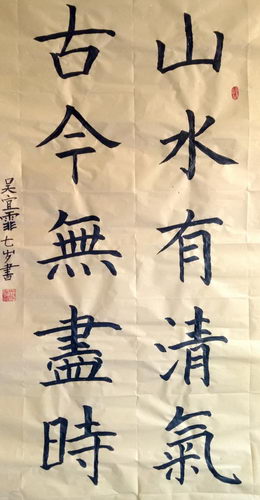 山水有清氣
古今無盡時
吴宜霏七岁書